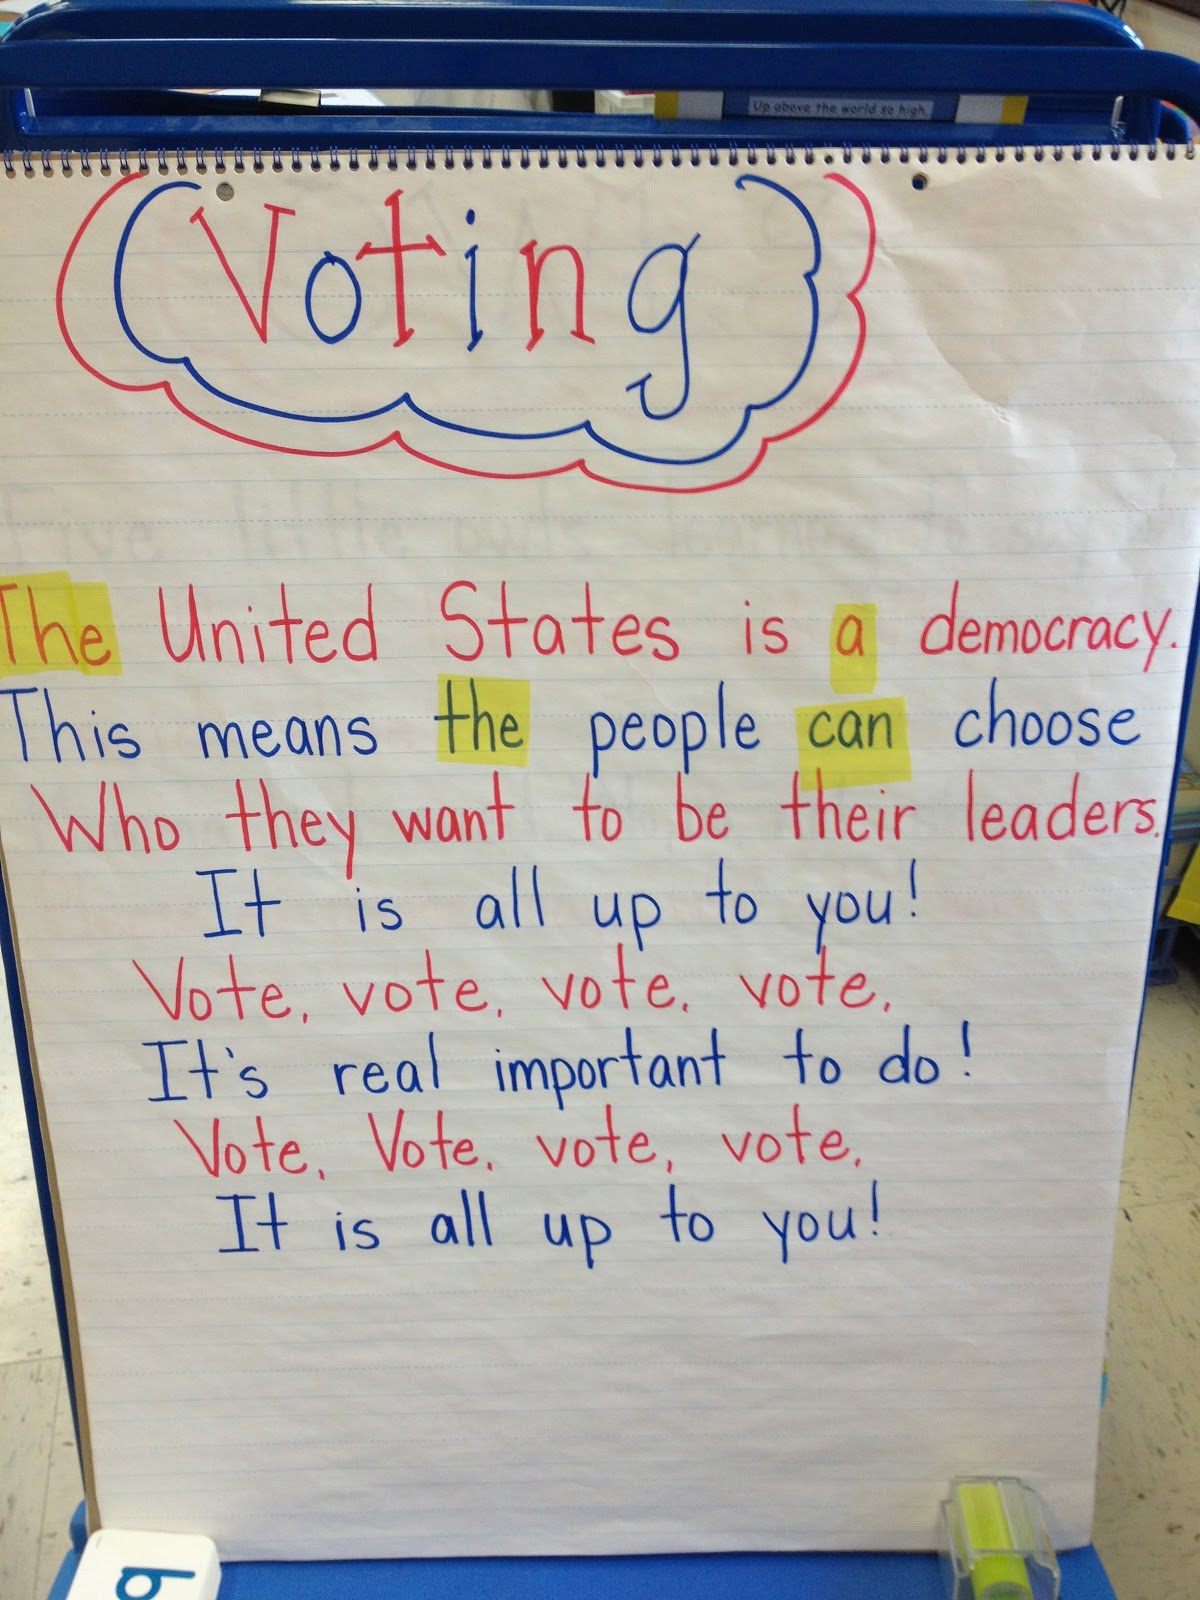 Up above the world so high
Voting
The United States is a democracy.
This means the people can choose
Who they want to be their leaders.
It is all up to you!
Vote, vote, vote, vote,
It's real important to do!
Vote, Vote, vote, vote,
It is all up to you!